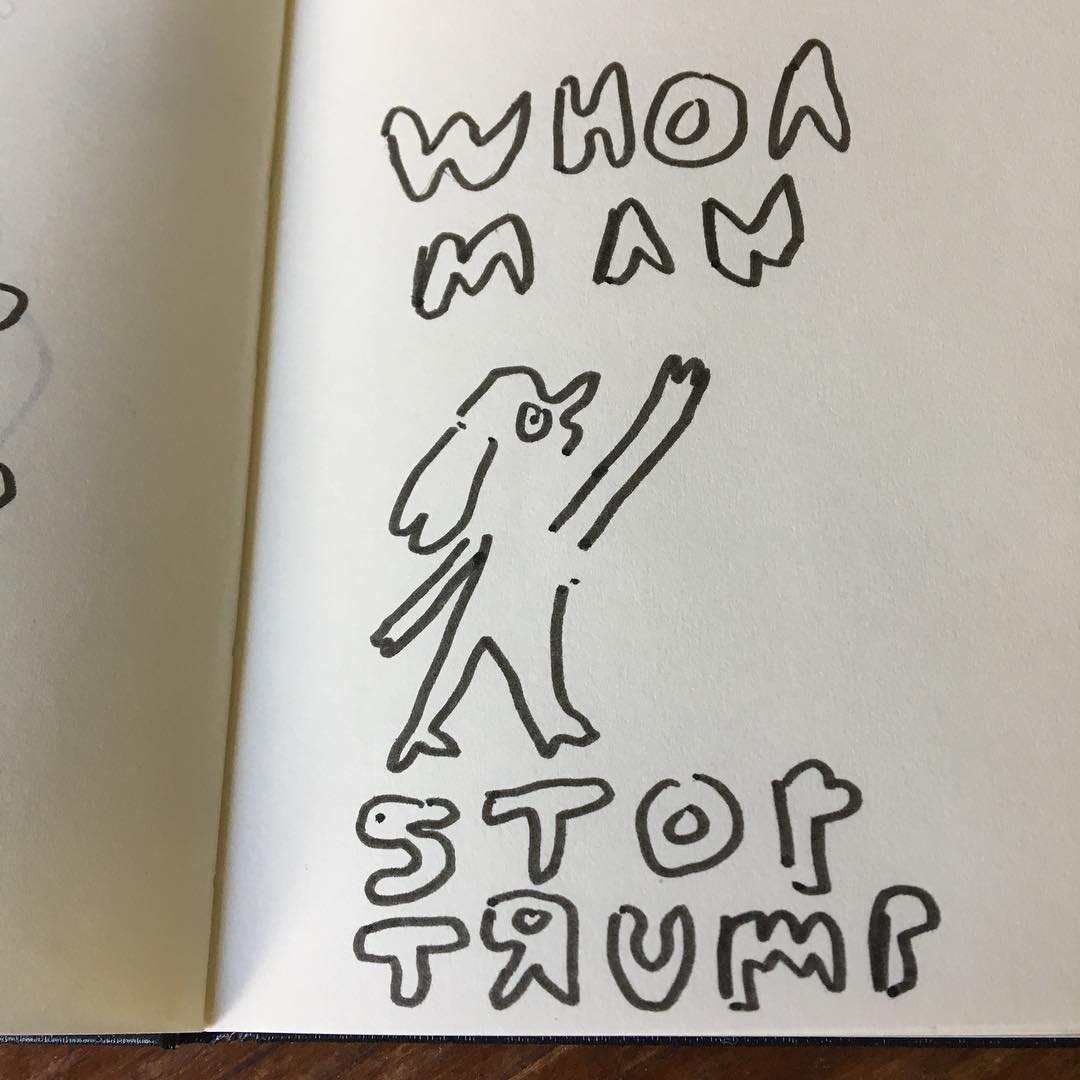 WHOA
MAN
STOP
TRUMP